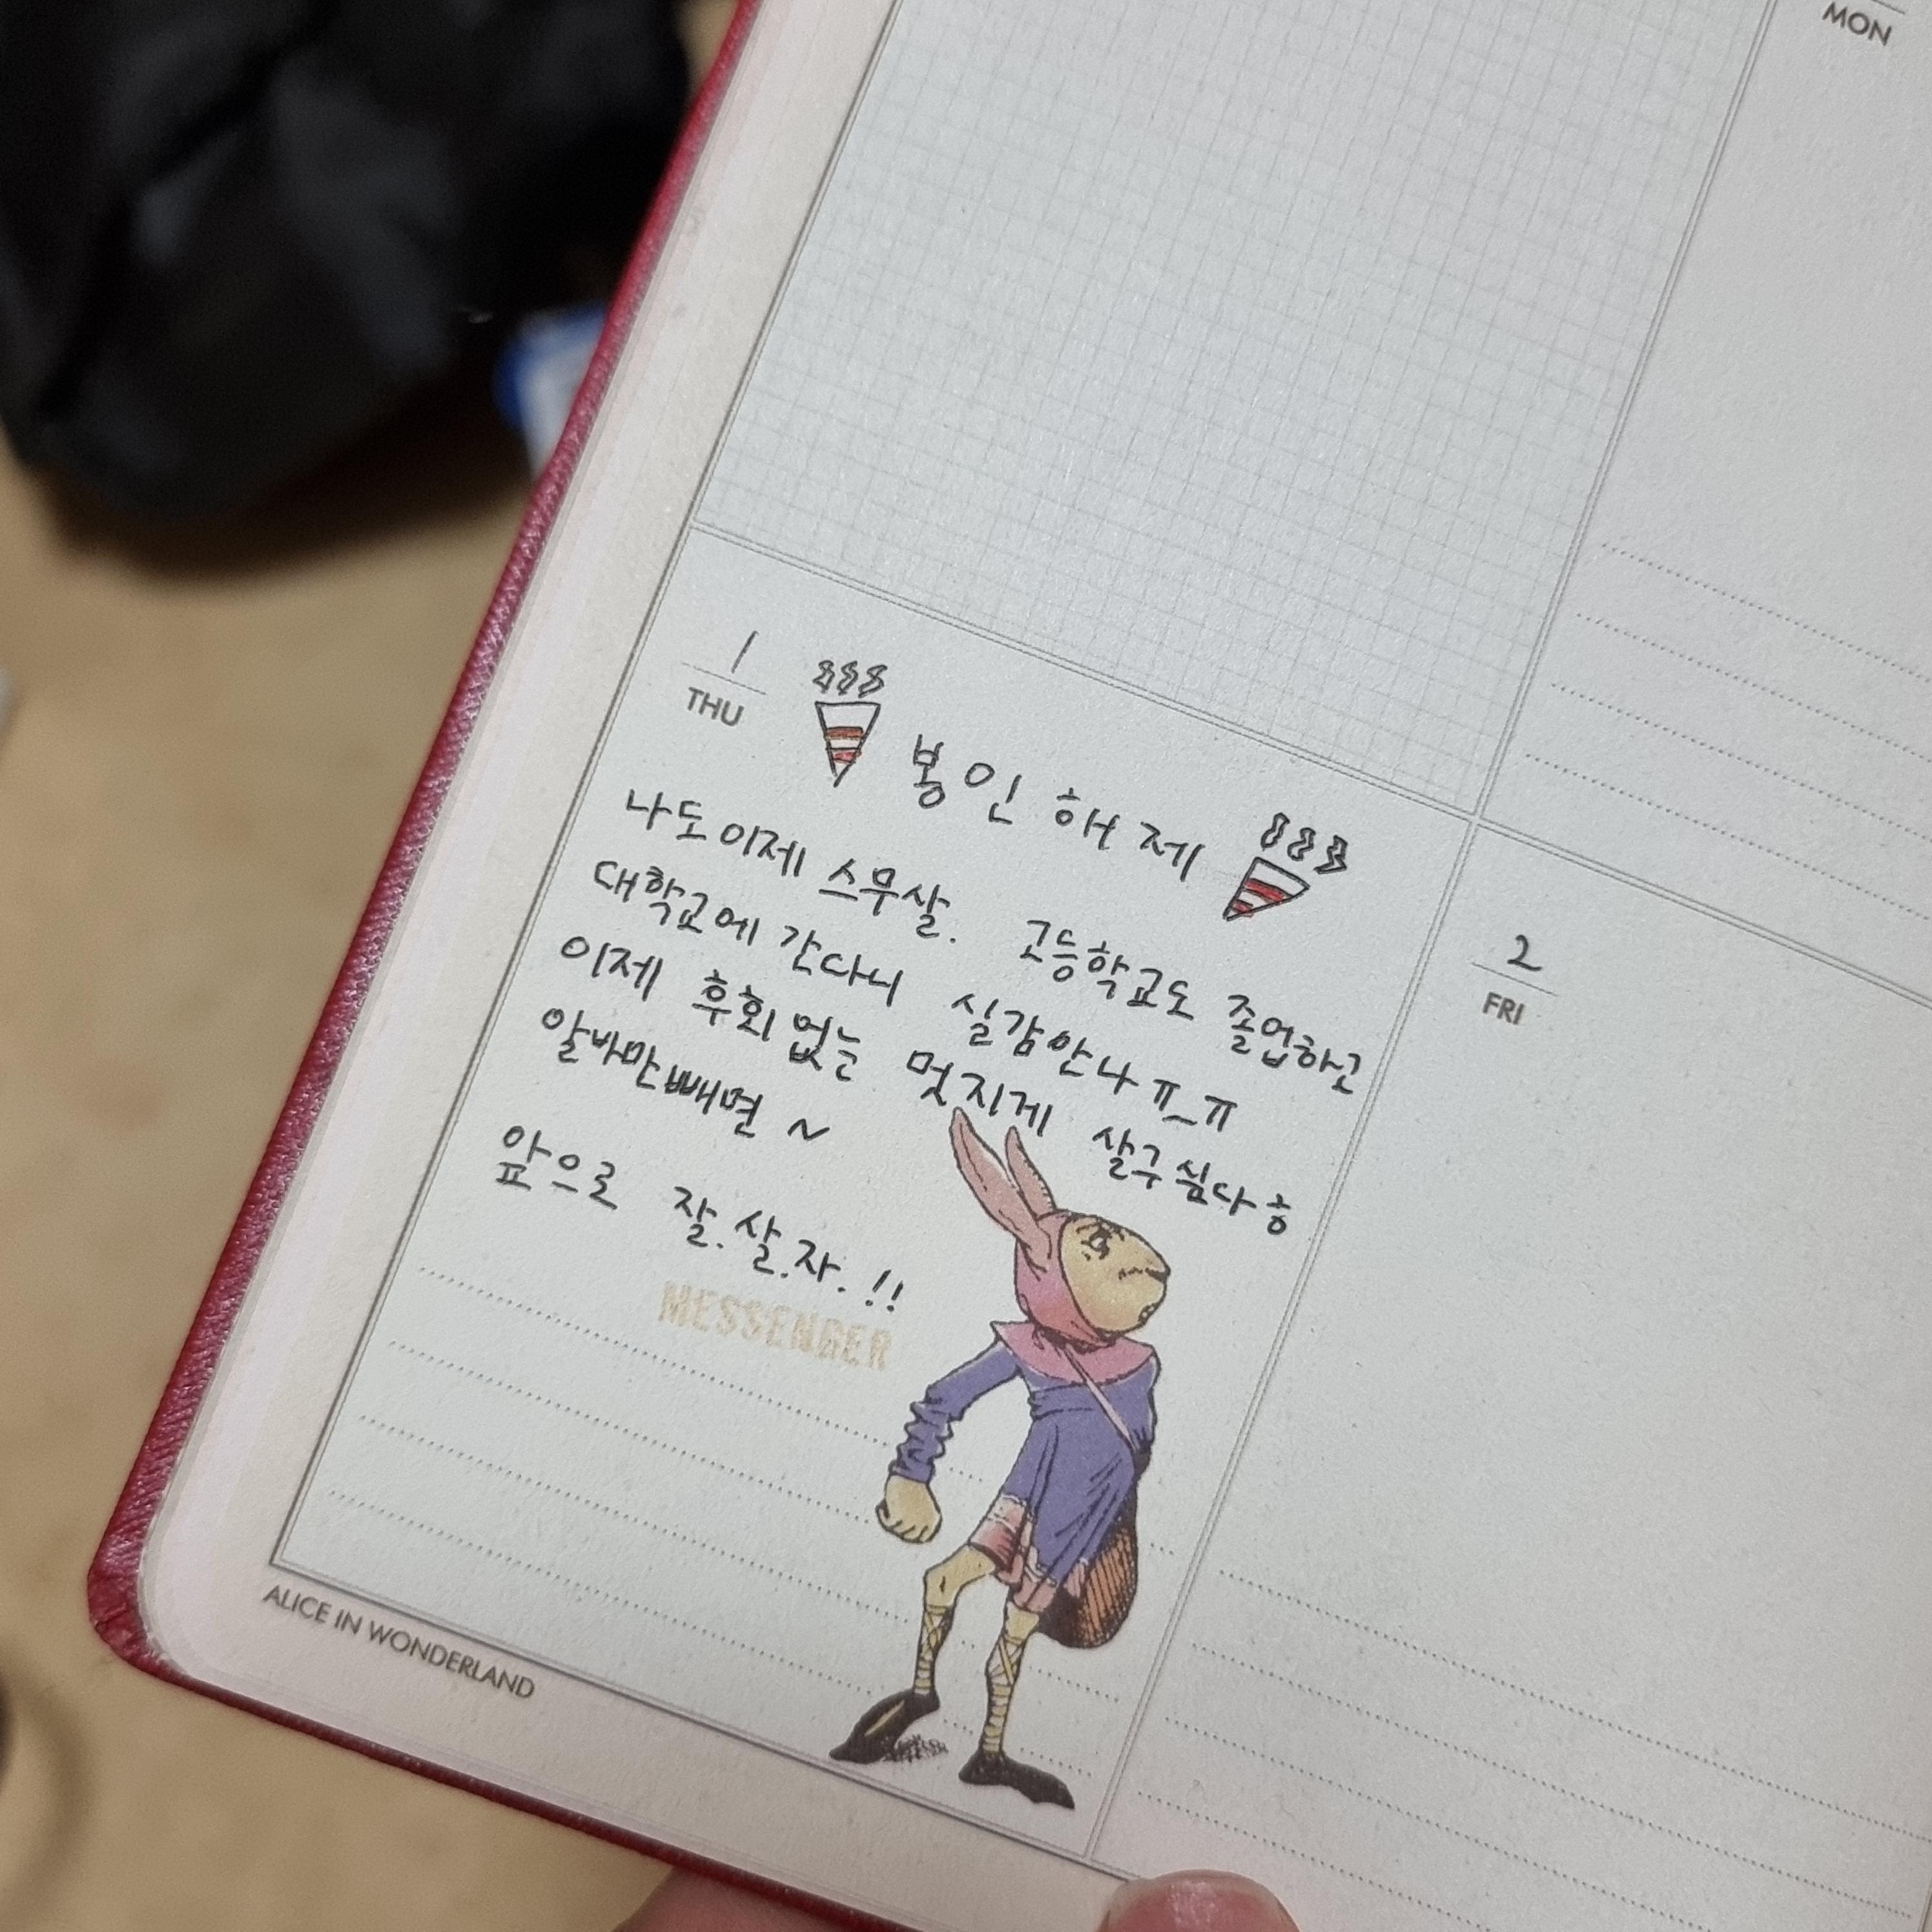 MON
1
THU
봉인해제
나도 이제 스무살. 고등학교도 졸업하고
대학교에 간다니 실감안나 ㅠ_ㅠ
이제 후회없는 멋지게 살구싶다 흥
알바만빼면 ~
앞으로 잘.살.자.!!
MESSENGER
ALICE IN WONDERLAND
2
FRI